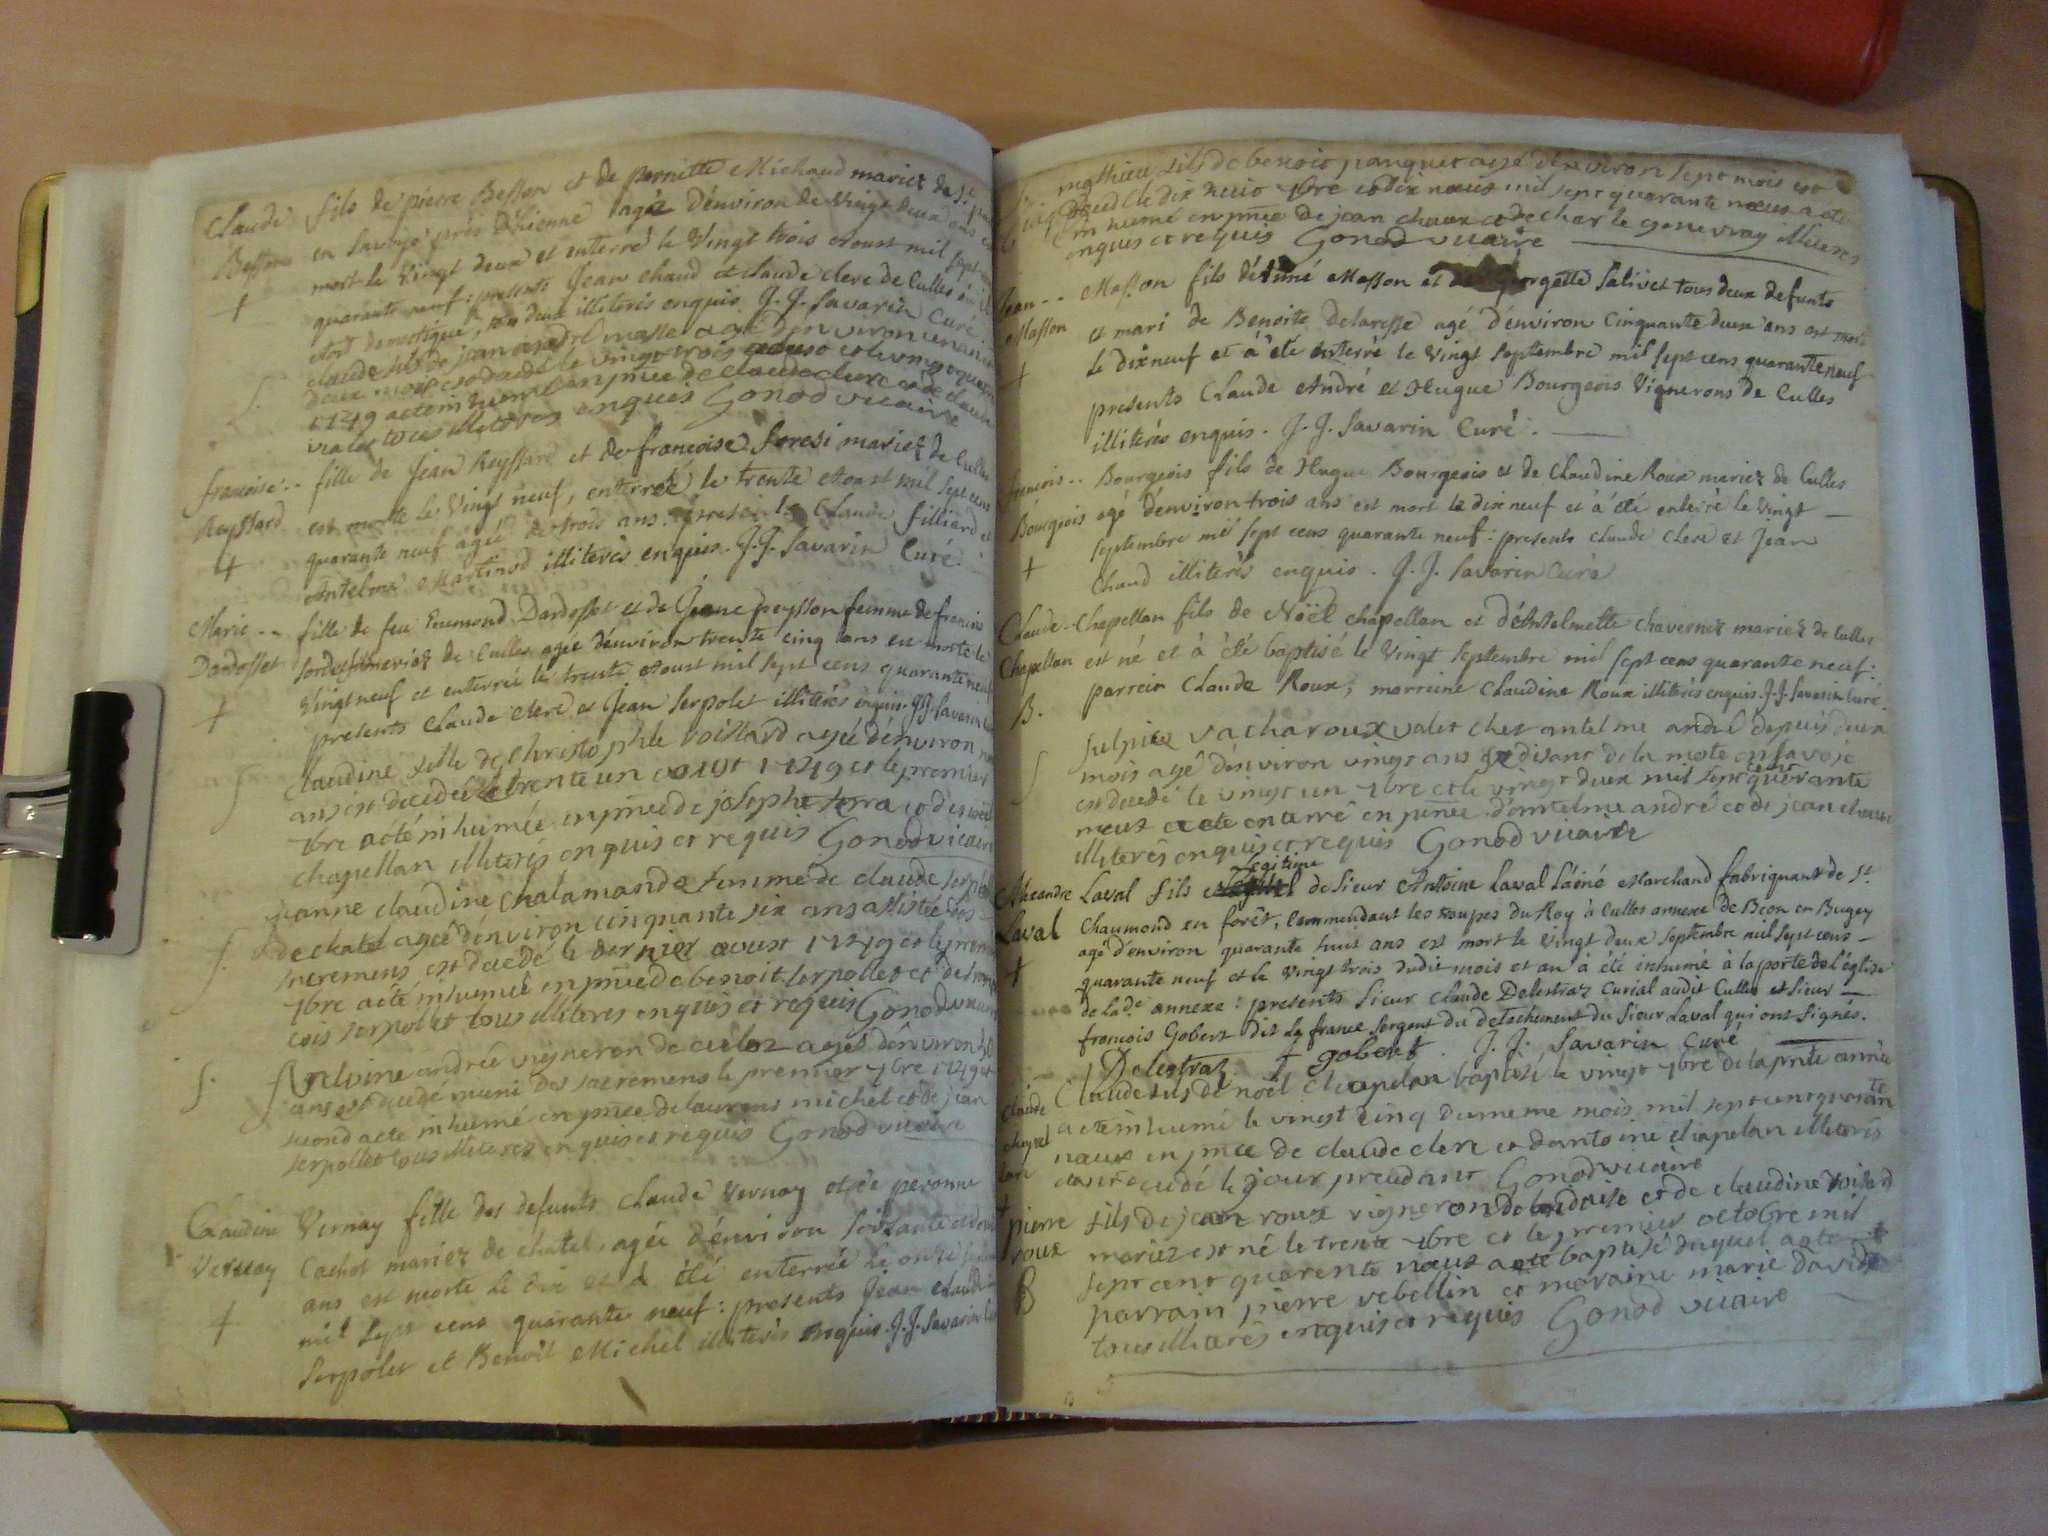 Claude fils de pierre Besson et de pernette Michaud mariez de St
Besson en Savoye près d'hienne agé d'environ de Vingt deux ans
mort le Vingt deux et enterré le Vingt trois Aoust mil sept
quarante neuf: presents Jean chaud et Claude clerc de Culles
domestique, tous deux illiterés enquis. J.J. Savarin Curé.
claude fils de jean andré masse agé d'environ un an
deux mois le vingt trois aoust et le vingt quatre
1749 a eté inhumé en pñce de claude clerc et de claude
tous illiteres enquis Gonod vicaire
francoise -- fille de Jean Reyssard et de francoise Soresi mariez de Culles
Reyssard est morte le Vingt neuf, enterrée le trente Aoust mil sept cens
+ quarante neuf agée de trois ans. presents Claude filliard et
Antelme Martinod illiterés enquis. J.J. Savarin Curé.
Marie -- fille de feu Eumond Dardosset et de Jeane peysson femme de francois
Dardosset mariez de Culles agée d'environ trente cinq ans est morte le
+ Vingt neuf et enterrée le trente Aoust mil sept cens quarante neuf
presents Claude clerc et Jean Serpolet illiterés enquis. J.J. Savarin
S claudine fille de christophle voillard agée d'environ
ans est decedée le trente un aoust 1749 et le premier
7bre a eté inhumée en pñce de josephe serra et de noel
chapellan illiterés enquis et requis Gonod vicaire
jeanne claudine chalamande femme de claude serpollet
S. de chatel agée d'environ cinquante six ans assistée des
sacremens est decedé le dernier aoust 1749 et le premier
7bre a eté inhumée en pñce de benoit serpollet et de fran
cois serpolet tous illiteres enquis et requis Gonod vicaire
S. Antoine andrée vigneron de culoz agé d'environ
ans est decedé muni des sacremens le premier 7bre 1749 et
second a eté inhumé en pñce de laurens michel et de jean
serpollet tous illiterez enquis et requis Gonod vicaire
Claudine Vernay fille des defunts Claude Vernay et de peronne
Vernay Cachot mariez de chatel, agée d'environ soixante et dix
ans est morte le dix et a été enterrée le onze
+ mil sept cens quarante neuf: presents Jean claude
Serpolet et Benoît Michel illiterés enquis. J.J. Savarin
mathieu fils de benoit panquet agé d'environ sept mois est
decedé le dix huit 7bre et dix neuf mil sept quarante neuf a eté
inhumé en pñce de jean chaux et de charle genevray illiteres
enquis et requis Gonod vicaire
Jean -- Masson fils d'Aimé Masson et de georgette Salivet tous deux defunts
Masson et mari de Benoite Delaresse agé d'environ Cinquante deux ans est mort
+ le dixneuf et à été enterré le Vingt Septembre mil sept cens quarante neuf
presents Claude André et Hugue Bourgeois Vignerons de Culles
illiterés enquis. J.J. Savarin Curé.
francois -- Bourgeois fils de Hugue Bourgeois et de Claudine Roux mariez de Culles
Bourgeois agé d'environ trois ans est mort le dixneuf et à été enterré le Vingt
Septembre mil sept cens quarante neuf: presents Claude Clerc et Jean
+ Chaud illiterés enquis. J.J. Savarin Curé
Claude - Chapellan fils de Noël chapellan et d'Antelmette chavernez mariez de Culles
Chapellan est né et à été baptisé le Vingt Septembre mil sept cens quarante neuf:
B. parrein Claude Roux, marreine Claudine Roux illiterés enquis. J.J. Savarin Curé.
Sulpice vacharoux valet chez antelme andré depuis deux
S mois agé d'environ vingt ans se disant de la mote en savoie
est decedé le vingt un 7bre et le vingt deux mil sept cent quarante
neuf a eté enterré en pñce d'antelme andré et de jean chaux
illiterés enquis et requis Gonod vicaire
Legitime
Alexandre Laval fils de Sieur Antoine Laval l'ainé Marchand fabriquant de St.
Laval Chaumond en forêt, Commendant les troupes du Roy à Culles annexe de Beon en Bugey
agé d'environ quarante huit ans est mort le Vingt deux Septembre mil sept cens
+ quarante neuf et le Vingt trois dudit mois et an à été inhumé à la porte de l'église
de lade. annexe: presents Sieur Claude Delestraz Curial audit Culles et Sieur
francois Gobert dit La france Sergent du detachement du Sieur Laval qui ont signés.
Delestraz + gobert. J.J. Savarin Curé
Claude Claude fils de noël chapelan baptisé le vingt 7bre de la pnte année
chapel a eté inhumé le vingt cinq du meme mois mil sept cent quarante
lan neuf en pñce de claude clerc et d'antoine chapelan illiterés
+ decedé le jour precedant Gonod vicaire
pierre fils de jean roux vigneron de et de claudine voilard
roux mariez est né le trente 7bre et le premier octobre mil
B sept cent quarente neuf a eté baptisé duquel a eté
parrain pierre rebellin et maraine marie david
tous illiterés enquis et requis Gonod vicaire